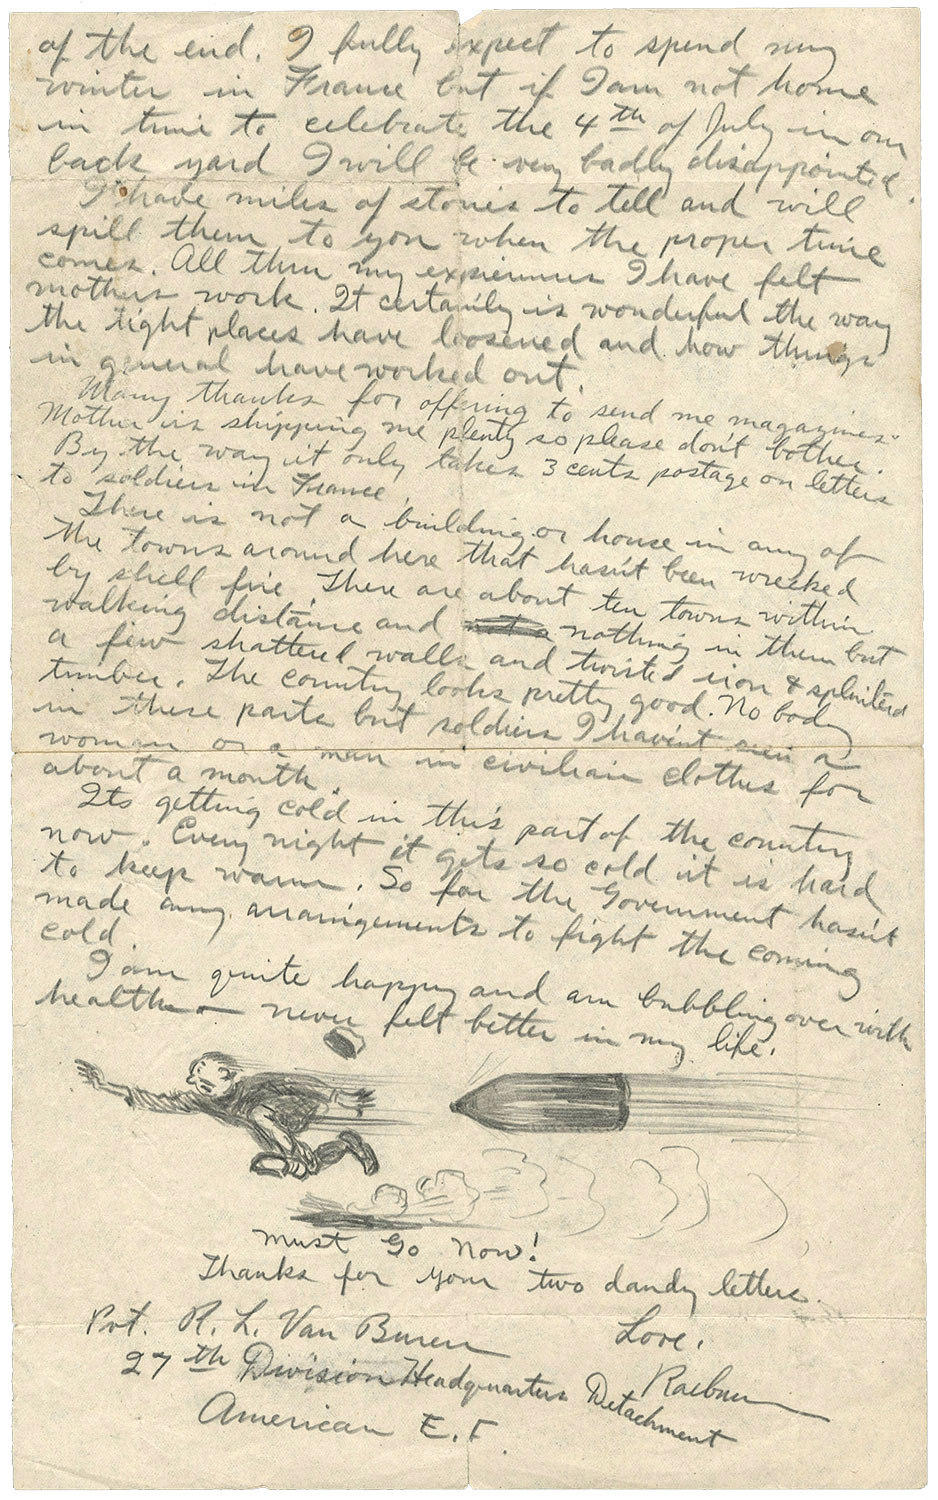 of the end. I fully expect to spend my
winter in France but if I am not home
in time to celebrate the 4th of July in our
back yard I will be very badly disappointed.
I have miles of stories to tell and will
spill them to you when the proper time
comes. All thru my experiences I have felt
mothers work. It certainly is wonderful the way
the tight places have loosened and how things
in general have worked out.
Many thanks for offering to send me magazines.
Mother is shipping me plenty so please don't bother.
By the way it only takes 3 cents postage on letters
to soldiers in France.
There is not a building or house in any of
the towns around here that hasn't been wrecked
by shell fire. There are about ten towns within
walking distance and nothing in them but
a few shattered walls and twisted iron & splintered
timber. The country looks pretty good. No body
in these parts but soldiers I havin't seen a
woman or a man in civilian clothes for
about a month.
Its getting cold in this part of the country
now. Every night it gets so cold it is hard
to keep warm. So far the Government hasn't
made any arrangements to fight the coming
cold.
I am quite happy and am bubbling over with
health — never felt better in my life.
must Go Now!
Thanks for your two dandy letters.
Love,
Pvt. R. L. Van Buren
Raeburn
27th Division Headquarters Detachment
American E. F.